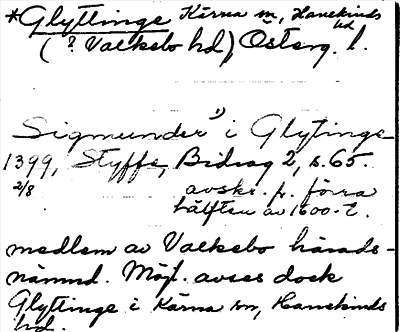 *Glyttinge Kärna sn, Hanekinds hd
(? Valkebo hd), Österg. l.
Sigmunder" i Glytinge
1399, Styffe, Bidrag 2, s. 65.
2/8 avskr. fr. förra
hälften av 1600-t.
medlem av Valkebo härads-
nämnd. Möjl. avses dock
Glyttinge i Kärna sn, Hanekinds
hd.